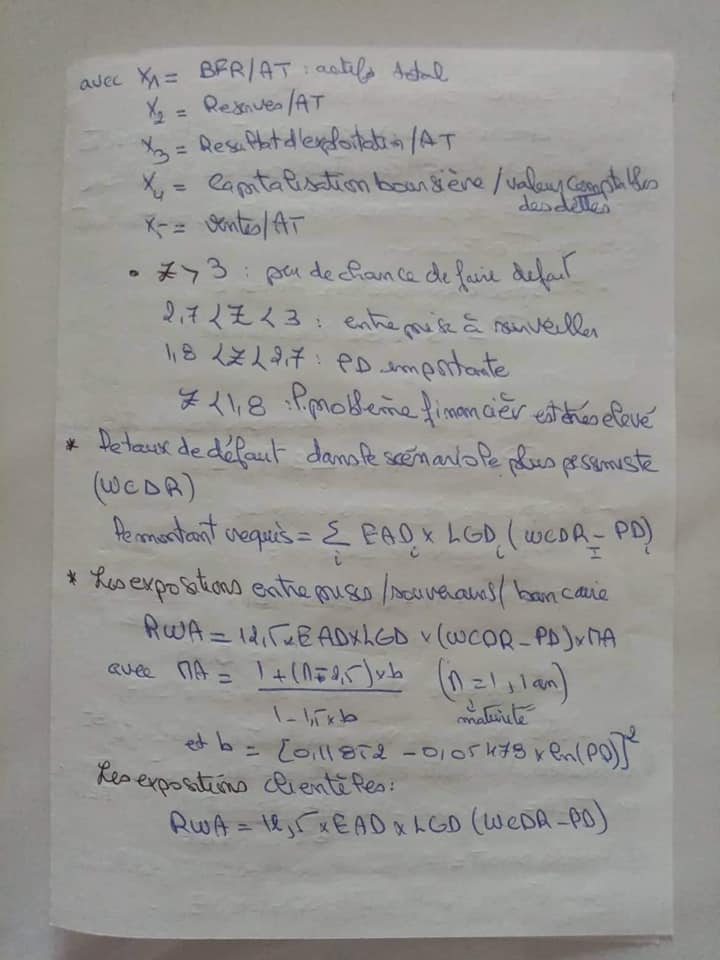 avec X1 = BFR/AT : actifs total
X2 = Reserves/AT
X3 = Resultat d'exploitation/AT
X4 = Capitalisation boursière / valeur comptables
des dettes
X5 = ventes/AT
• Z > 3 : peu de chance de faire defaut
2,7 < Z < 3 : entreprise à surveiller
1,8 < Z < 2,7 : PD importante
Z < 1,8 : P.problème financièr est très elevé
* Le taux de défaut dans le scénario le plus pessimiste
(WCDR)
Le montant requis = Σi EADi × LGDi (WCDRI - PDi)
* Les expositions entreprises / souverains / bancaire
RWA = 12,5 × EAD × LGD × (WCDR - PD) × MA
avec MA = 1 + (M - 2,5) × b (M = 1, 1 an)
1 - 1,5 × b maturité
et b = [0,11852 - 0,05478 × ln(PD)]²
Les expositions clientèles :
RWA = 12,5 × EAD × LGD (WCDR - PD)